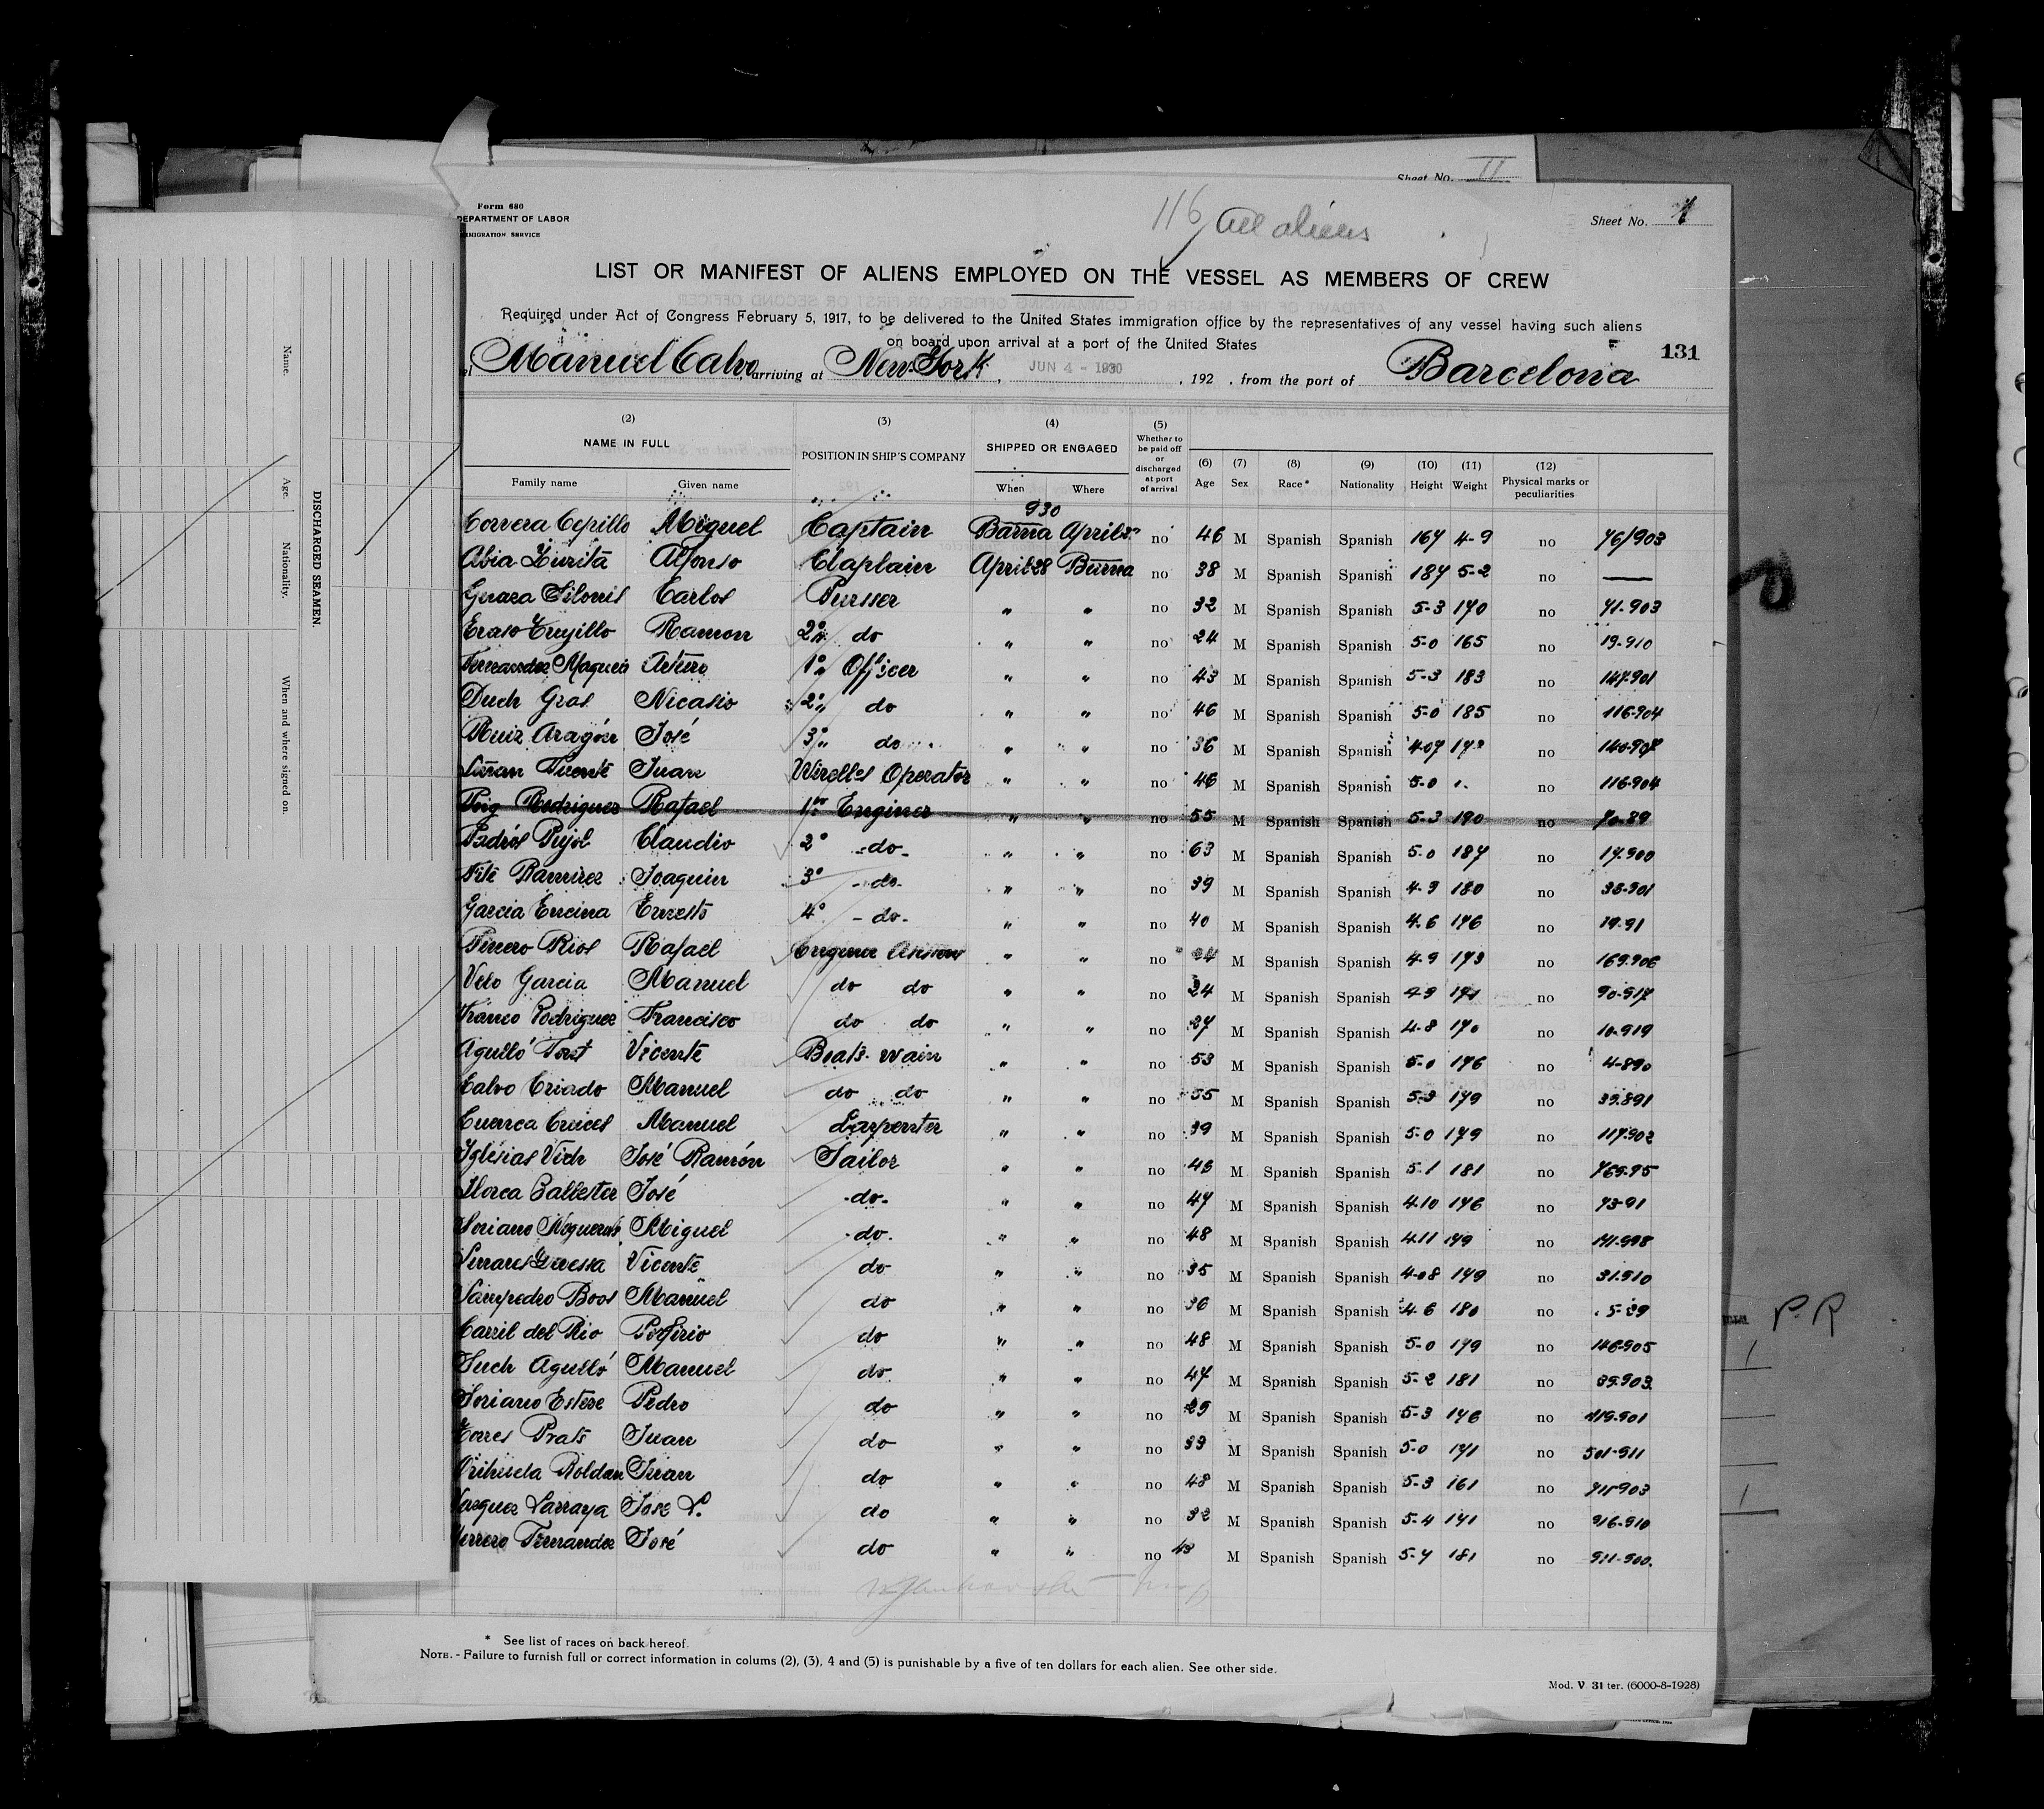 Sheet No. II
Form 680
DEPARTMENT OF LABOR
IMMIGRATION SERVICE
116 all aliens
Sheet No. 1
LIST OR MANIFEST OF ALIENS EMPLOYED ON THE VESSEL AS MEMBERS OF CREW
Required under Act of Congress February 5, 1917, to be delivered to the United States immigration office by the representatives of any vessel having such aliens
on board upon arrival at a port of the United States
131
el Manuel Calvo, arriving at New-York, JUN 4 - 1930, 192 , from the port of Barcelona
(2) NAME IN FULL (3) POSITION IN SHIP'S COMPANY (4) SHIPPED OR ENGAGED (5) Whether to be paid off or discharged at port of arrival
Family name Given name When Where (6) Age (7) Sex (8) Race* (9) Nationality (10) Height (11) Weight (12) Physical marks or peculiarities
930
Miguel Captain Barna April no 46 M Spanish Spanish 167 4-9 no 76/903
Abia Zurita Alfonso Claplain April 28 Barna no 38 M Spanish Spanish 187 5-2 no —
Carlos Pursser " " no 32 M Spanish Spanish 5-3 170 no 71-903
Eraso Trujillo Ramon 2º do " " no 24 M Spanish Spanish 5-0 165 no 19-910
Arturo 1º Officer " " no 43 M Spanish Spanish 5-3 183 no 147-901
Duch Gras Nicasio 2º do " " no 46 M Spanish Spanish 5-0 185 no 116-904
Ruiz Aragón José 3º do " " no 36 M Spanish Spanish 4-07 no
Juan Operator " " no 46 M Spanish Spanish 5-0 no 116-904
Puig Rodriguez Rafael Enginer " " no 55 M Spanish Spanish 5-3 190 no 70-89
Padrós Pujol Claudio 2º -do- " " no 63 M Spanish Spanish 5-0 187 no 17-900
Ramirez Joaquin 3º -do- " " no 39 M Spanish Spanish 4-9 180 no 36-901
Garcia Encina Ernesto 4º -do- " " no 40 M Spanish Spanish 4-6 176 no 19-91
Rios Rafael " " no M Spanish Spanish 4-9 173 no 169-906
Garcia Manuel do do " " no 24 M Spanish Spanish 4-9 no 90-917
Franco Rodriguez Francisco do do " " no 27 M Spanish Spanish 4-8 170 no 10-919
Agulló Vicente Boats-wain " " no 53 M Spanish Spanish 5-0 176 no 4-890
Calvo Criado Manuel do do " " no 55 M Spanish Spanish 5-3 179 no 39-891
Cuenca Cruces Manuel Carpenter " " no 39 M Spanish Spanish 5-0 179 no 117-902
Iglesias Vich José Ramón Sailor " " no 43 M Spanish Spanish 5-1 181 no
Llorca Ballester José -do- " " no 47 M Spanish Spanish 4-10 176 no 73-91
Soriano Miguel -do- " " no 48 M Spanish Spanish 4-11 179 no
Linares Vicente do " " no 35 M Spanish Spanish 4-08 179 no 31-910
Sampedro Boos Manuel do " " no 36 M Spanish Spanish 4-6 180 no
Carril del Rio Porfirio do " " no 48 M Spanish Spanish 5-0 179 no 146-905
Such Agulló Manuel do " " no 47 M Spanish Spanish 5-2 181 no 39-903
Soriano Esteve Pedro do " " no 29 M Spanish Spanish 5-3 176 no
Torres Prats Juan do " " no 33 M Spanish Spanish 5-0 171 no 501-911
Orihuela Roldan Juan do " " no 48 M Spanish Spanish 5-3 161 no
Vazquez Larraya Jose L. do " " no 32 M Spanish Spanish 5-4 171 no 916-910
Fernandez José do " " no 43 M Spanish Spanish 5-7 181 no 911-900
* See list of races on back hereof
NOTE. - Failure to furnish full or correct information in colums (2), (3), 4 and (5) is punishable by a five of ten dollars for each alien. See other side.
Mod. V 31 ter. (6000-8-1928)
DISCHARGED SEAMEN.
Name.
Age.
Nationality.
When and where signed on.
P. R